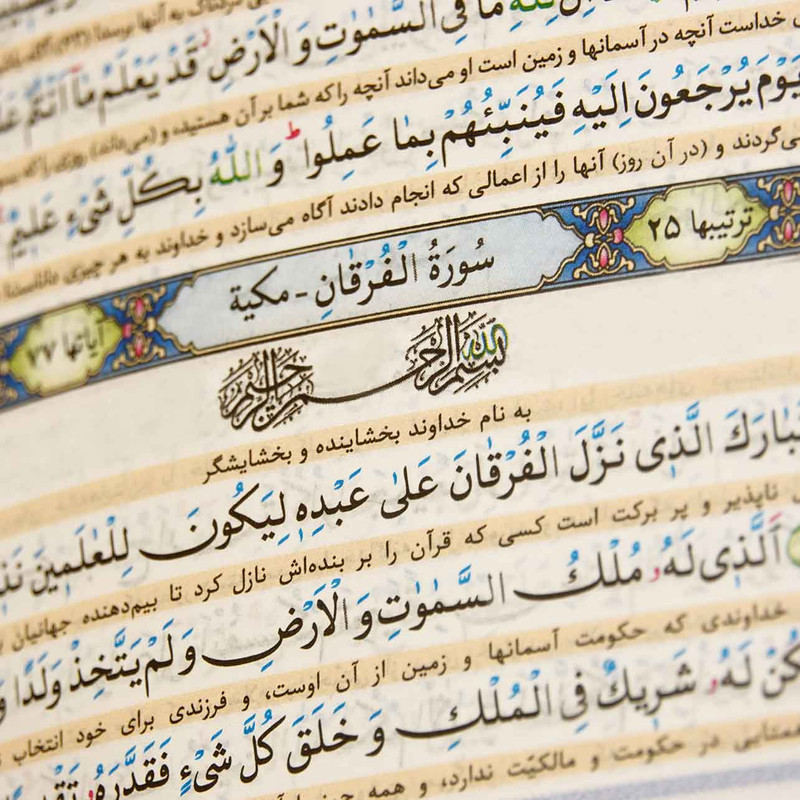 لِلَّهِ مَا فِی السَّمٰوٰتِ وَ الْاَرْضِ قَدْ یَعْلَمُ مَا اَنْتُمْ
خداست آنچه در آسمانها و زمین است او می‌داند آنچه را که شما بر آن هستید و (می‌داند) روزی را که
یَوْمَ یُرْجَعُونَ اِلَیْهِ فَیُنَبِّئُهُمْ بِمٰا عَمِلُوا وَ اللّٰهُ بِکُلِّ شَیْءٍ عَلِیمٌ
می‌گردند و (در آن روز) آنها را از اعمالی که انجام دادند آگاه می‌سازد و خداوند به هر چیزی داناست
ترتیبها ۲۵ سُورَةُ الْفُرْقٰانِ - مکیة آیاتها ۷۷
بسم الله الرحمن الرحیم
به نام خداوند بخشاینده و بخشایشگر
الَّذِی نَزَّلَ الْفُرْقٰانَ عَلیٰ عَبْدِهِ لِیَکُونَ لِلْعٰالَمِینَ
ناپذیر و پر برکت است کسی که قرآن را بر بنده‌اش نازل کرد تا بیم‌دهنده جهانیان
اَلَّذِی لَهُ مُلْکُ السَّمٰوٰتِ وَ الْاَرْضِ وَ لَمْ یَتَّخِذْ وَلَدًا
خداوندی که حکومت آسمانها و زمین از آن اوست، و فرزندی برای خود انتخاب
لَهُ شَرِیكٌ فِی الْمُلْكِ وَ خَلَقَ کُلَّ شَیْءٍ فَقَدَّرَهُ
همتایی در حکومت و مالکیّت ندارد، و همه